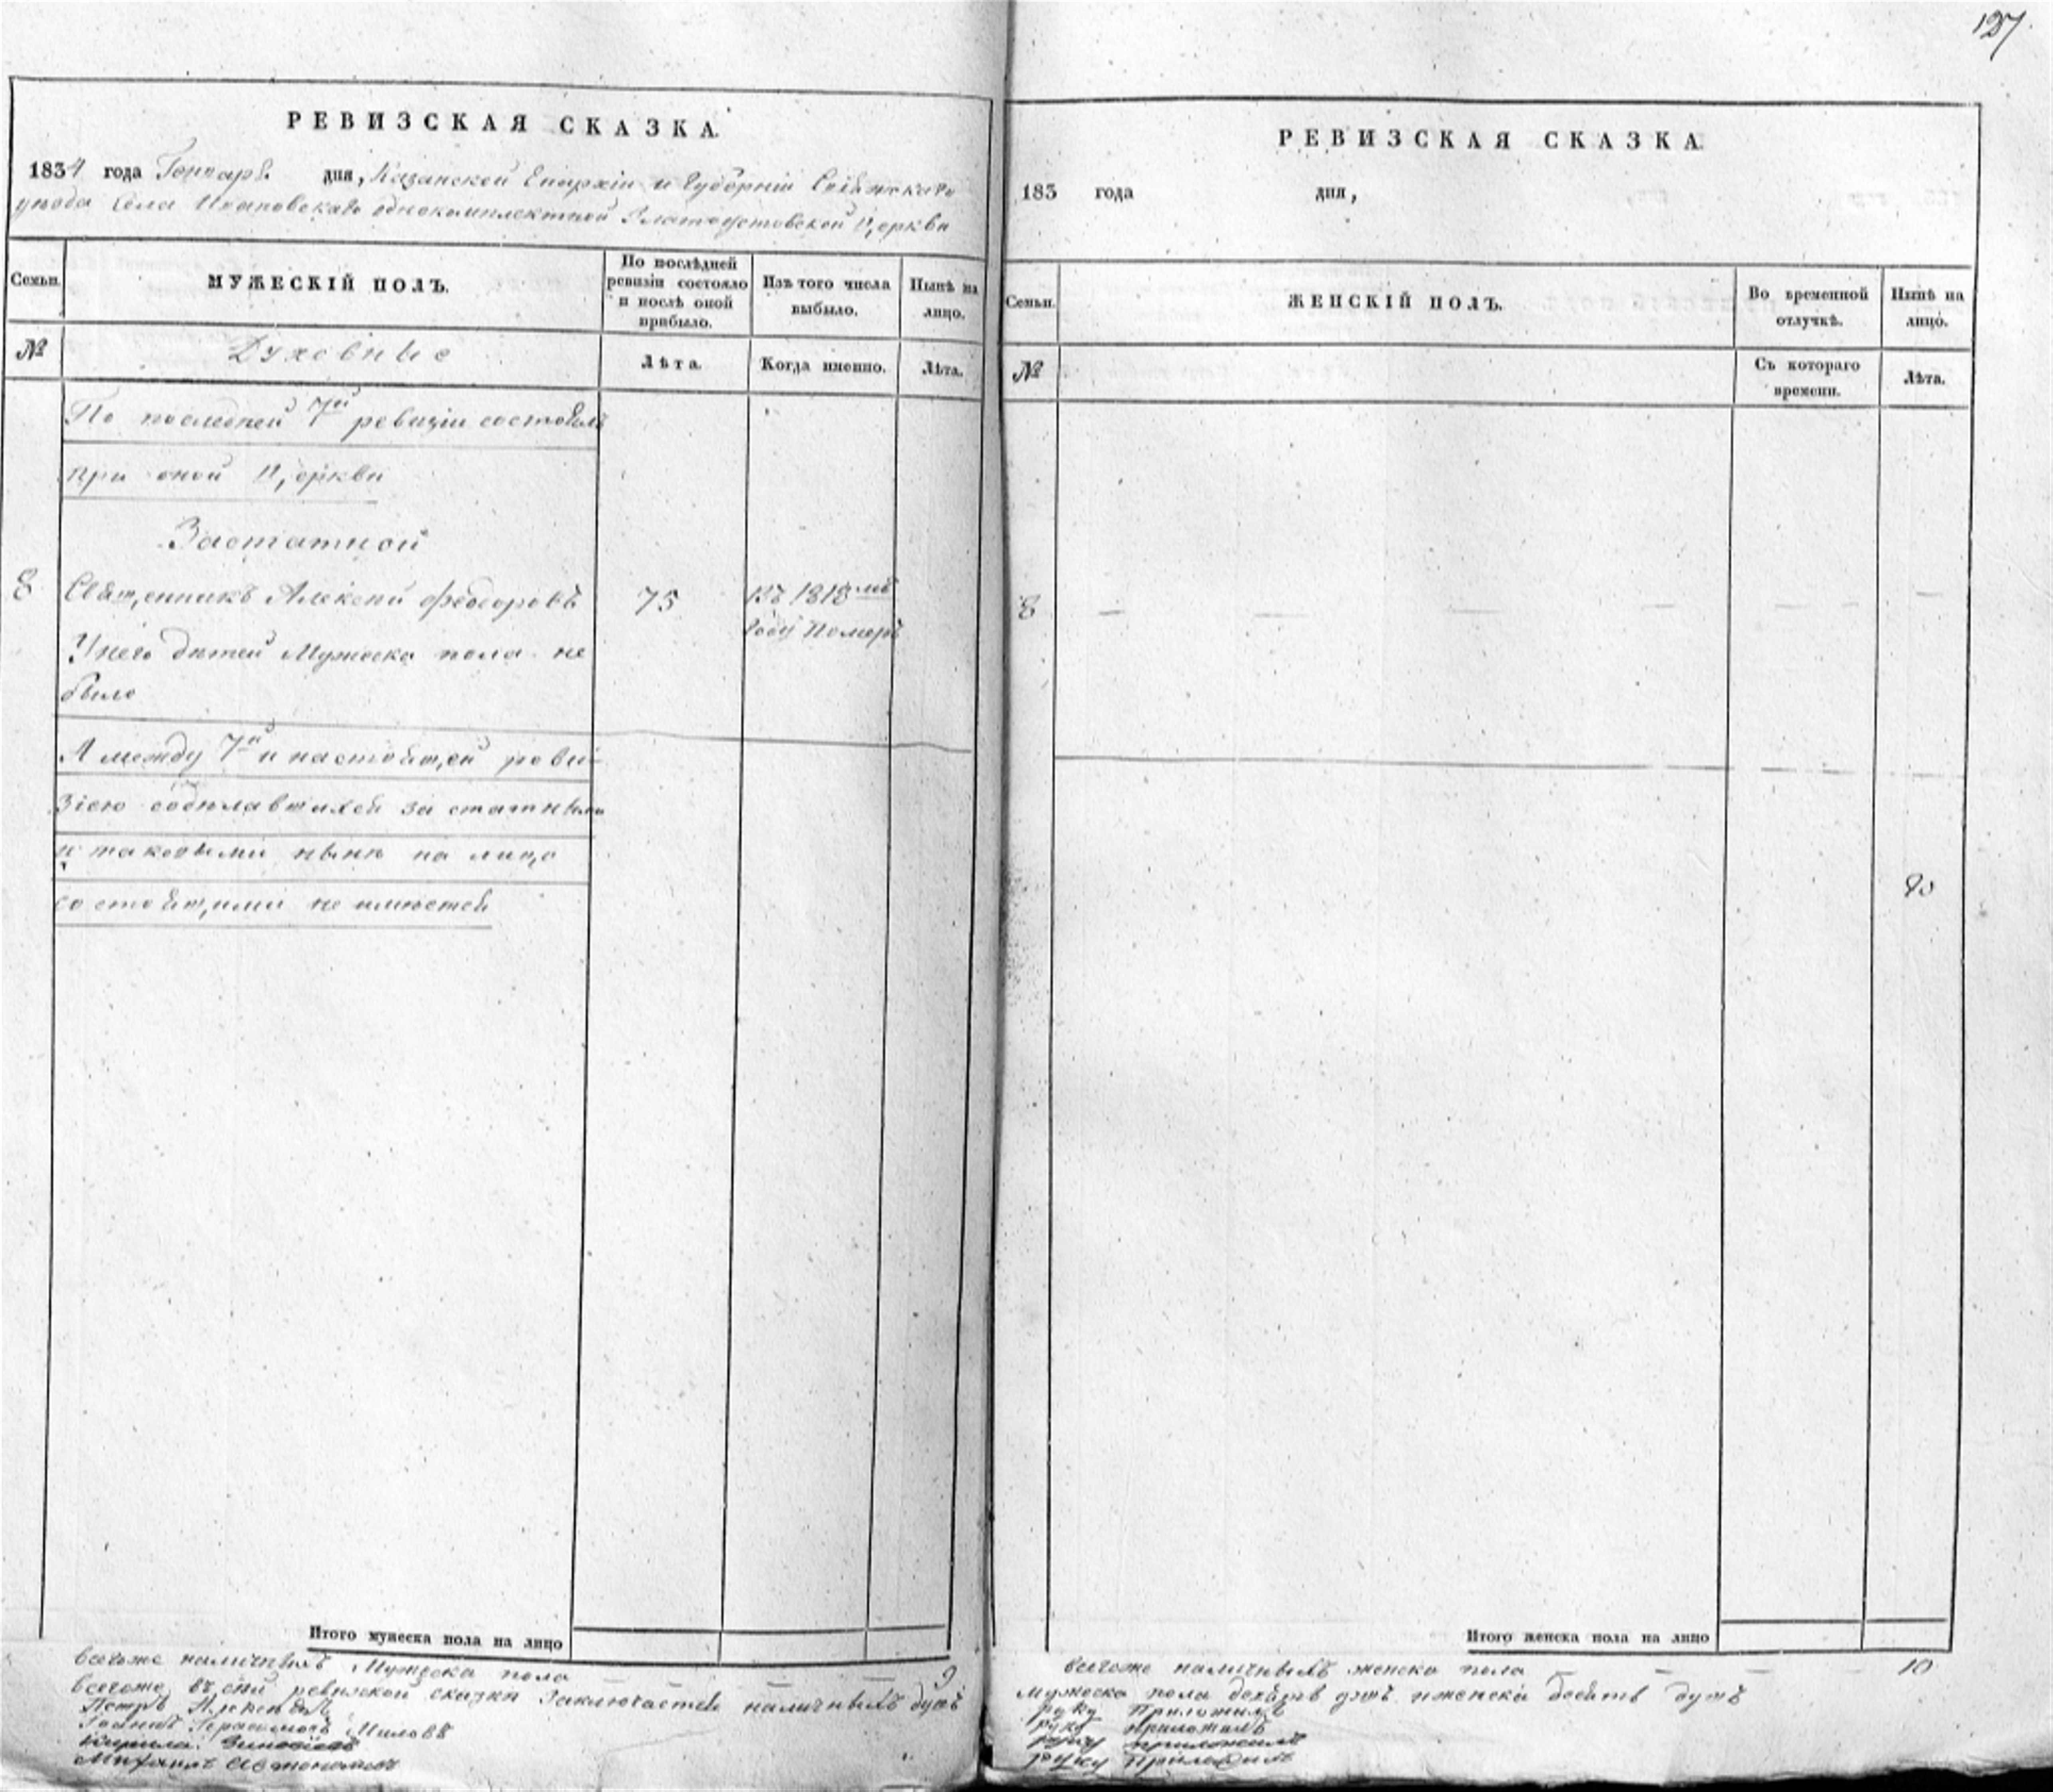 127.
РЕВИЗСКАЯ СКАЗКА.
1834 года Генваря дня, Казанской Епархіи и Губерніи Свіяжскаго
уезда Села Ивановскаго однокомплектной Златоустовской Церкви
Семьи.
МУЖЕСКІЙ ПОЛЪ.
По послѣдней ревизіи состояло и послѣ оной прибыло.
Изъ того числа выбыло.
Нынѣ на лицо.
№
Духовные
Лѣта.
Когда именно.
Лѣта.
По последней 7ой ревизіи состоялъ
при оной Церкви
Заштатной
8 Священникъ Алексей Феодоровъ 75 Въ 1818мъ
году Померъ
У него детей Мужеска пола не
было
А между 7й и настоящей реви-
зіею соделавшихся за статными
и таковыми ныне на лицо
состоящими не имеется
Итого мужеска пола на лицо
всегоже наличныхъ Мужеска пола 9
всегоже въ сей ревизской сказке Заключается наличныхъ душъ
Петръ
Іоаннъ Герасимовъ Миловъ
Кирила
Михаилъ Автономовъ
РЕВИЗСКАЯ СКАЗКА.
183 года дня,
Семьи.
ЖЕНСКІЙ ПОЛЪ.
Во временной отлучкѣ.
Нынѣ на лицо.
№
Съ котораго времени.
Лѣта.
8
Итого женска пола на лицо
всегоже наличныхъ женска пола 10
мужеска пола девять душъ и женска десять душъ
руку Приложилъ
руку приложилъ
руку приложилъ
руку Приложилъ